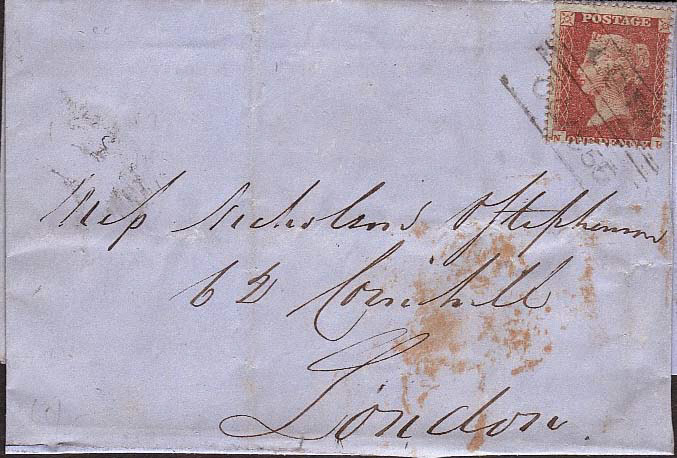 POSTAGE
ONE PENNY
N
Mess Nicholand & Stephenson
62 Cornhill
London.